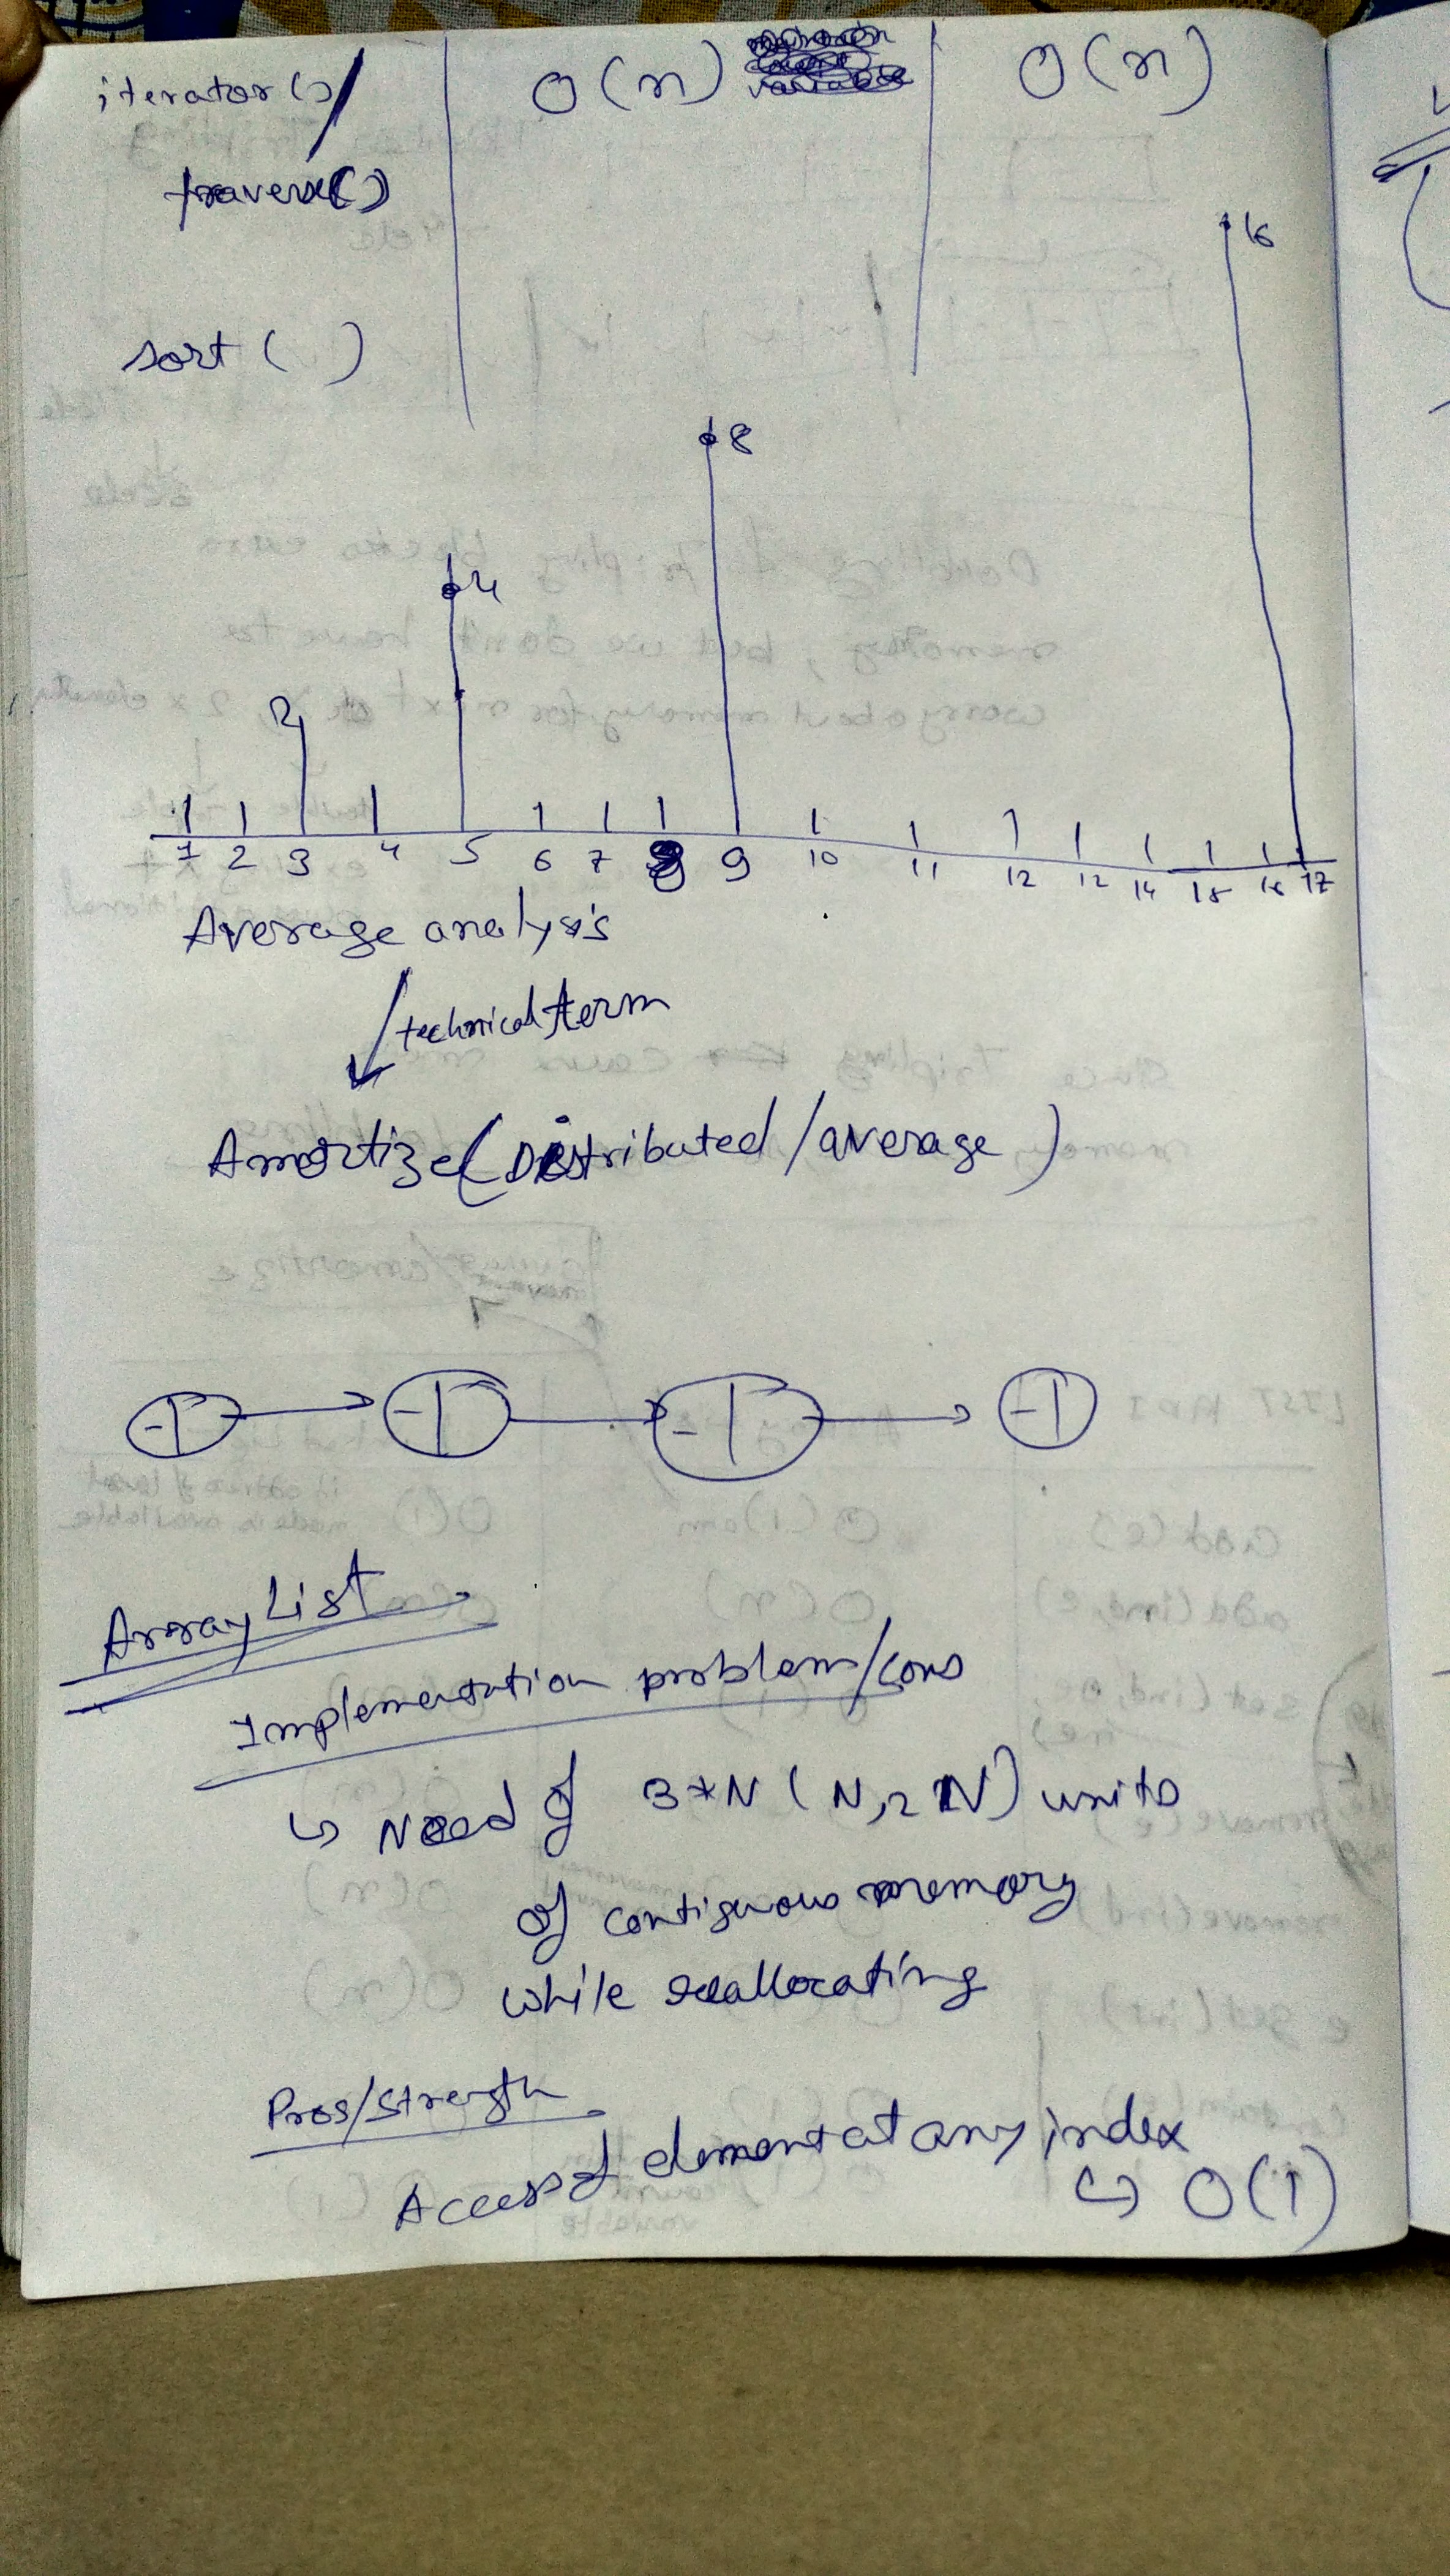 iterator()/ O(n) O(n)
traverse()
16
sort( )
8
4
2
1 2 3 4 5 6 7 8 9 10 11 12 12 14 15 16 17
Average analysis
technical term
Amortize (Distributed/average)
ArrayList
Implementation problem/cons
↳ Need of 3*N (N,2N) units
of contiguous memory
while reallocating
Pros/Strength
Access of element at any index
↳ O(1)